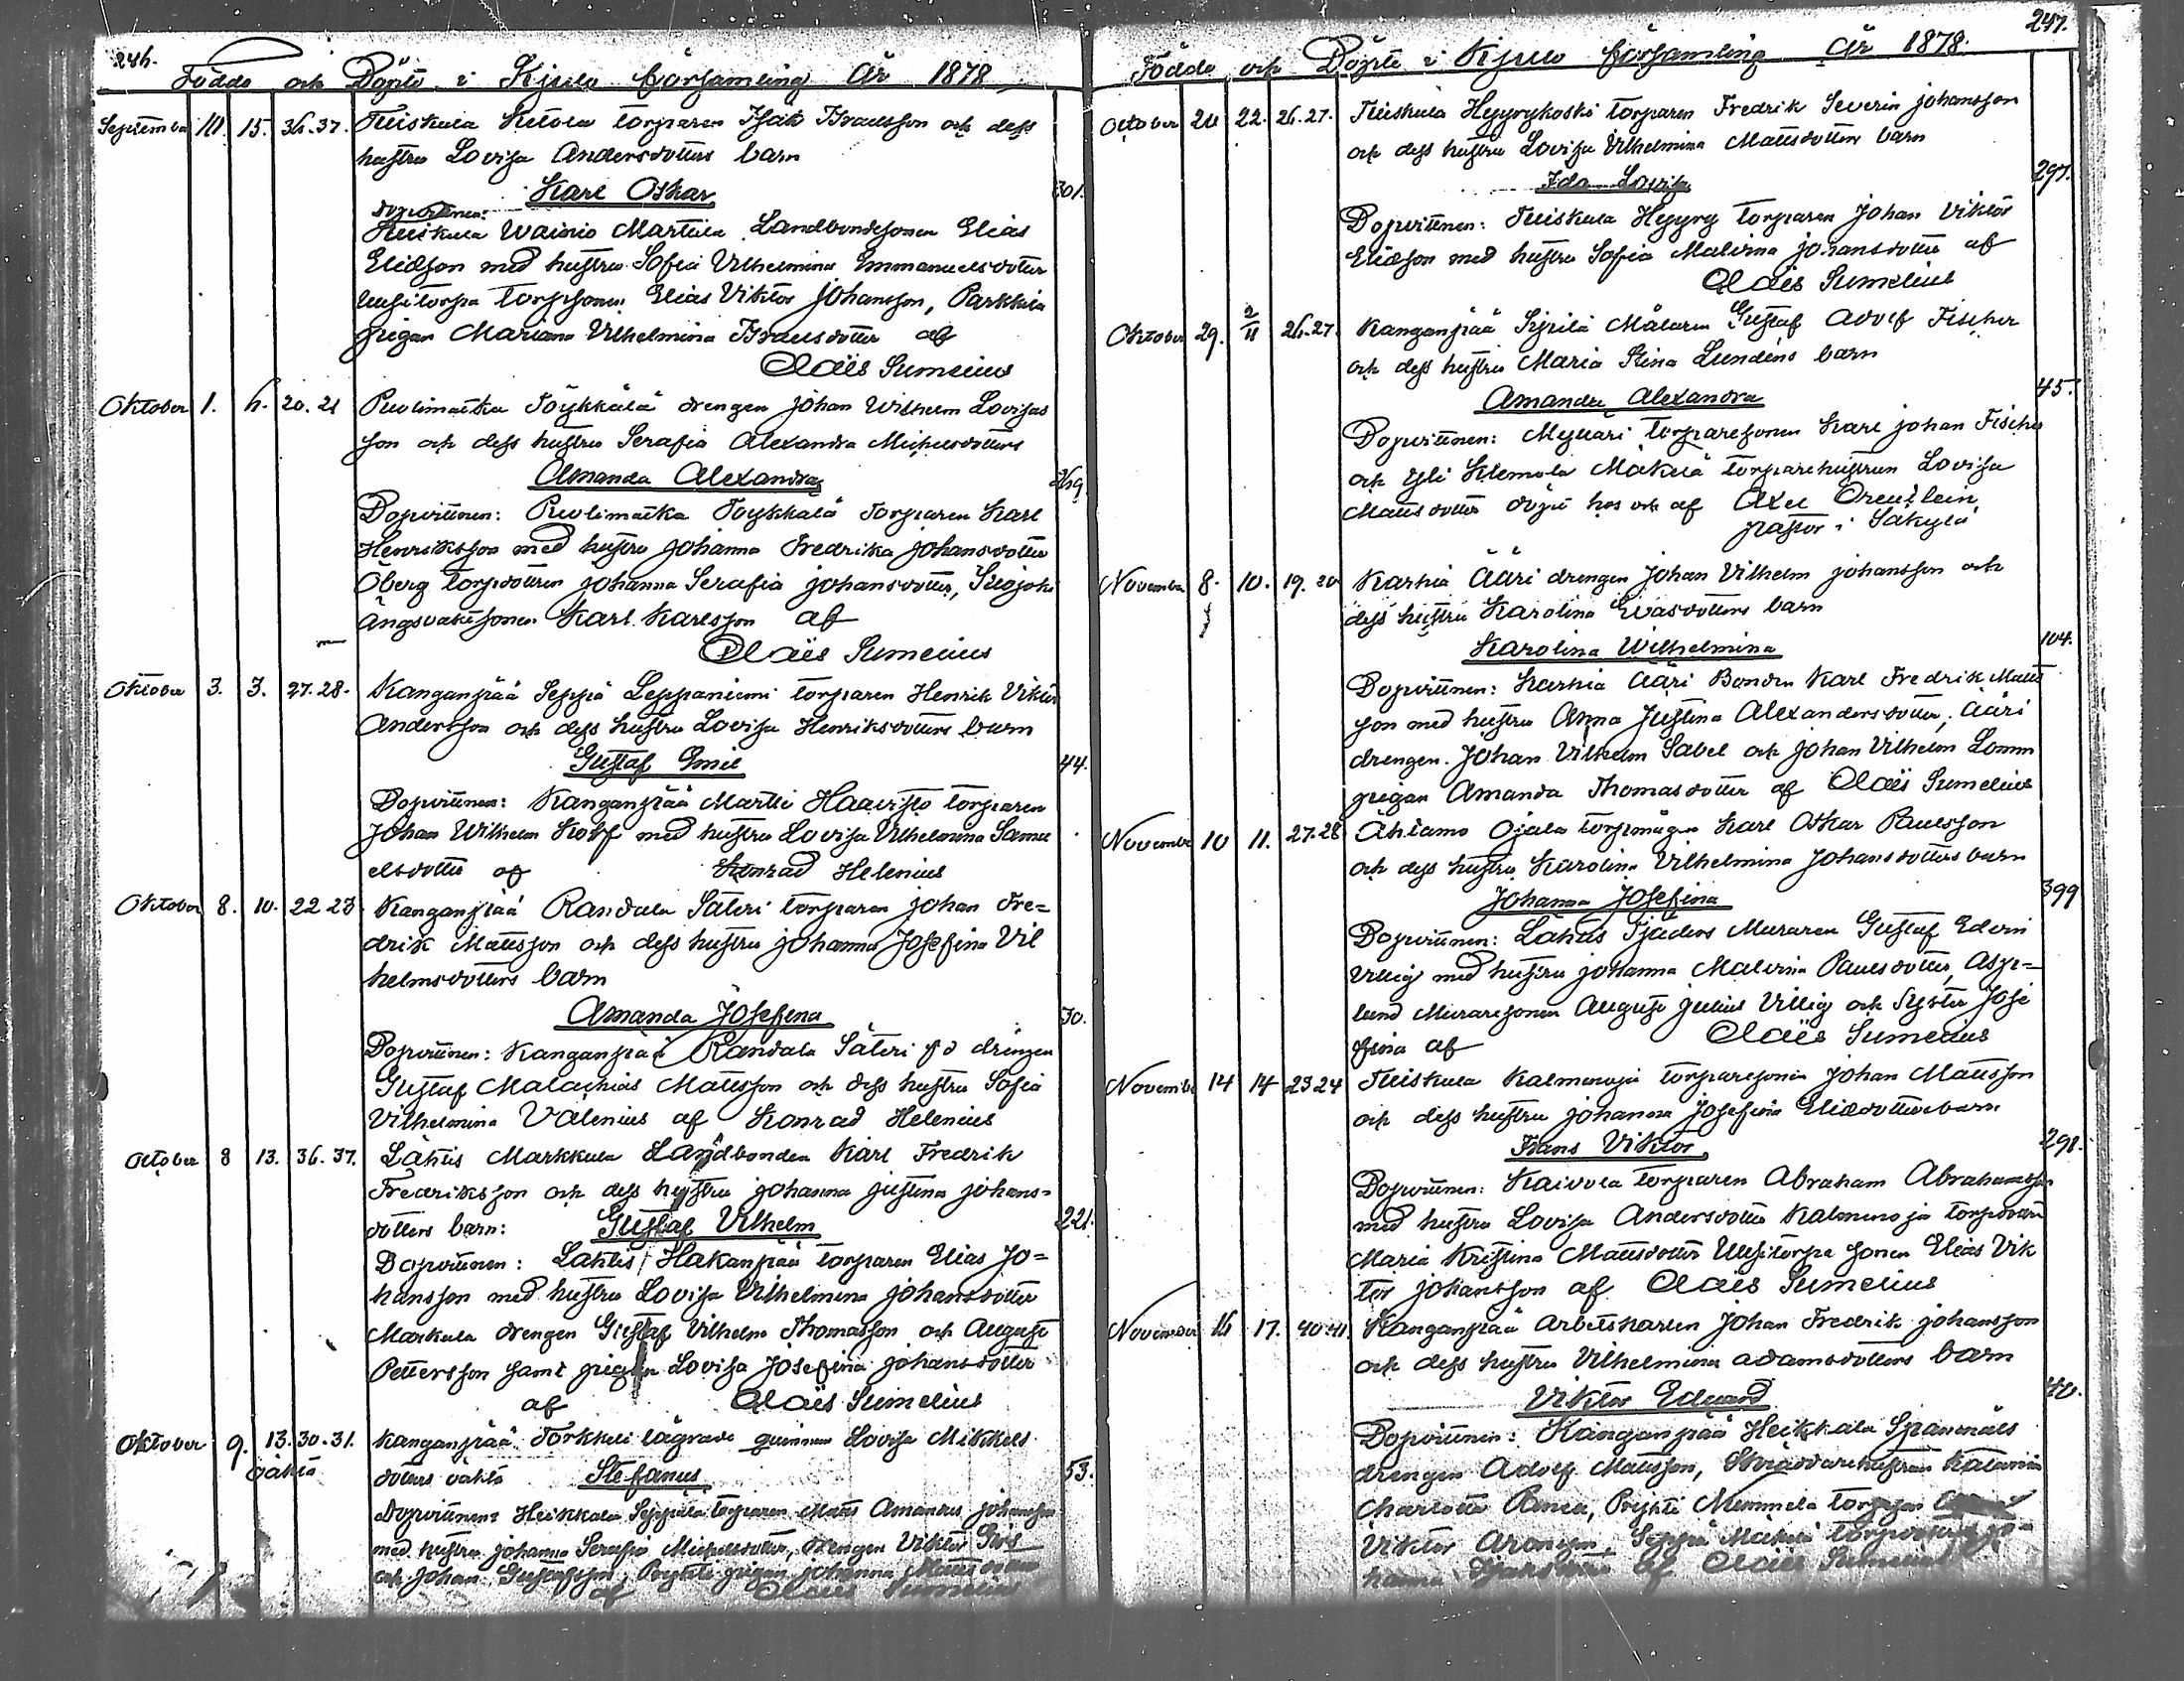 246.
Födde och Döpte i Kjulo församling År 1878
September 10. 15. 36.37. Tuiskula Ketola torparen Isak Israelsson och dess
hustru Lovisa Andersdotters barn
Karl Oskar 301.
Dopvittnen:
Tuiskula Wainio Marttila Landbondesonen Elias
Eliasson med hustru Sofia Vilhelmina Emmanuelsdotter
Uusitorpa torpsonen Elias Viktor Johansson, Parkkila
pigan Mariana Vilhelmina Israelsdotter af
Claës Sumelius
Oktober 1. 6. 20.21 Puolimatka Töykkälä drengen Johan Wilhelm Lovisas
son och dess hustru Serafia Alexandra Michelsdotters
Amanda Alexandra 269
Dopvittnen: Puolimatka Töykkälä Torparen Karl
Henriksson med hustru Johanna Fredrika Johansdotter
Öberg torpdottren Johanna Serafia Johansdotter, Isojoki
Ängsvaktsonen Karl Karlsson af
Claës Sumelius
Oktober 3. 7. 27.28. Kanganpää Seppä Leppäniemi torparen Henrik Viktor
Andersson och dess hustru Lovisa Henriksdotters barn
Gustaf Emil 44.
Dopvittnen: Kanganpää Martti Haavisto torparen
Johan Wilhelm Koff med hustru Lovisa Vilhelmina Samu
elsdotter af Konrad Helenius
Oktober 8. 10. 22 23 Kanganpää Randala Säteri torparen Johan Fre=
drik Mattsson och dess hustru Johanna Josefina Vil
helmsdotters barn
Amanda Josefina 30.
Dopvittnen: Kanganpää Randala Säteri fd drängen
Gustaf Malachias Mattsson och dess hustru Sofia
Vilhelmina Valenius af Konrad Helenius
October 8 13. 36.37. Lähtis Markkula Landbonden Karl Fredrik
Fredriksson och dess hustru Johanna Justina Johans=
dotters barn: Gustaf Vilhelm 221.
Dopvittnen: Lahtis Hakanpää torparen Elias Jo=
hansson med hustru Lovisa Vilhelmina Johansdotter
Markula drengen Gustaf Vilhelm Thomasson och August
Pettersson samt pigan Lovisa Josefina Johansdotter
af Claës Sumelius
Oktober 9. 13. 30.31. Kanganpää Torkkeli lägrade quinnan Lovisa Mikkels
oäkta dotters oäkta Stefanus 53.
Dopvittnen: Heikkala Seppälä torparen Matts Amandus Johansson
med hustru Johanna Serafia Michelsdotter, drengen Viktor
och Johan Gustafsson, Pryhti pigan Johanna
af Claës Sumelius
247.
Födde och Döpte i Kjulo församling År 1878.
October 20 22. 26.27. Tuiskula Hyyrykoski torparen Fredrik Severin Johansson
och dess hustru Lovisa Vilhelmina Mattsdotters barn
Ida Lovisa 297.
Dopvittnen: Tuiskula Hyyry torparen Johan Viktor
Eliasson med hustru Sofia Malvina Johansdotter af
Claës Sumelius
Oktober 29. 2/11 26.27. Kanganpää Sipilä Målaren Gustaf Adolf Fischer
och dess hustru Maria Stina Lundéns barn
Amanda Alexandra 45.
Dopvittnen: Mylläri torparesonen Karl Johan Fischer
och Yli Klemola Mäkelä torparehustrun Lovisa
Mattsdotter döpt hos och af Axel Orenlein
pastor i Säkylä
November 8. 10. 19.20 Karhia Ääri drengen Johan Vilhelm Johansson och
dess hustru Karolina Evasdotters barn
Karolina Wilhelmina 104.
Dopvittnen: Karhia Ääri Bonden Karl Fredrik Matts
son med hustru Anna Justina Alexandersdotter, Ääri
drengen Johan Vilhelm Sabel och Johan Vilhelm Lomm
pigan Amanda Thomasdotter af Claës Sumelius
November 10 11. 27.28 Ähtamo Ojala torpmågen Karl Oskar Paulsson
och dess hustru Karolina Vilhelmina Johansdotters barn
Johanna Josefina 399
Dopvittnen: Lähtis Sjäders Muraren Gustaf Edvin
Villig med hustru Johanna Malvina Paulsdotter, Asp=
lund Muraresonen August Julius Villig och Syster Jose
fina af Claës Sumelius
November 14 14 23 24 Tuiskula Kalmenoja torparesonen Johan Mattsson
och dess hustru Johanna Josefina Eliasdotters barn
Frans Viktor 291.
Dopvittnen: Kaivola torparen Abraham Abrahamsson
med hustru Lovisa Andersdotter Kalmenoja torpdottren
Maria Kristina Mattsdotter Uusitorpa sonen Elias Vik
tor Johansson af Claës Sumelius
November 16 17. 40.41. Kanganpää Arbetskarlen Johan Fredrik Johansson
och dess hustru Vilhelmina Adamsdotters barn
Viktor Edvard 40.
Dopvittnen: Kanganpää Heikkala Spanmåls
drengen Adolf Mattsson, Skräddarehustrun Katarina
Charlotta Rinell, Pryhti Mimmela torp
Viktor Aronen, Seppä Mäkelä torpdottren Jo=
hanna af Claës Sumelius